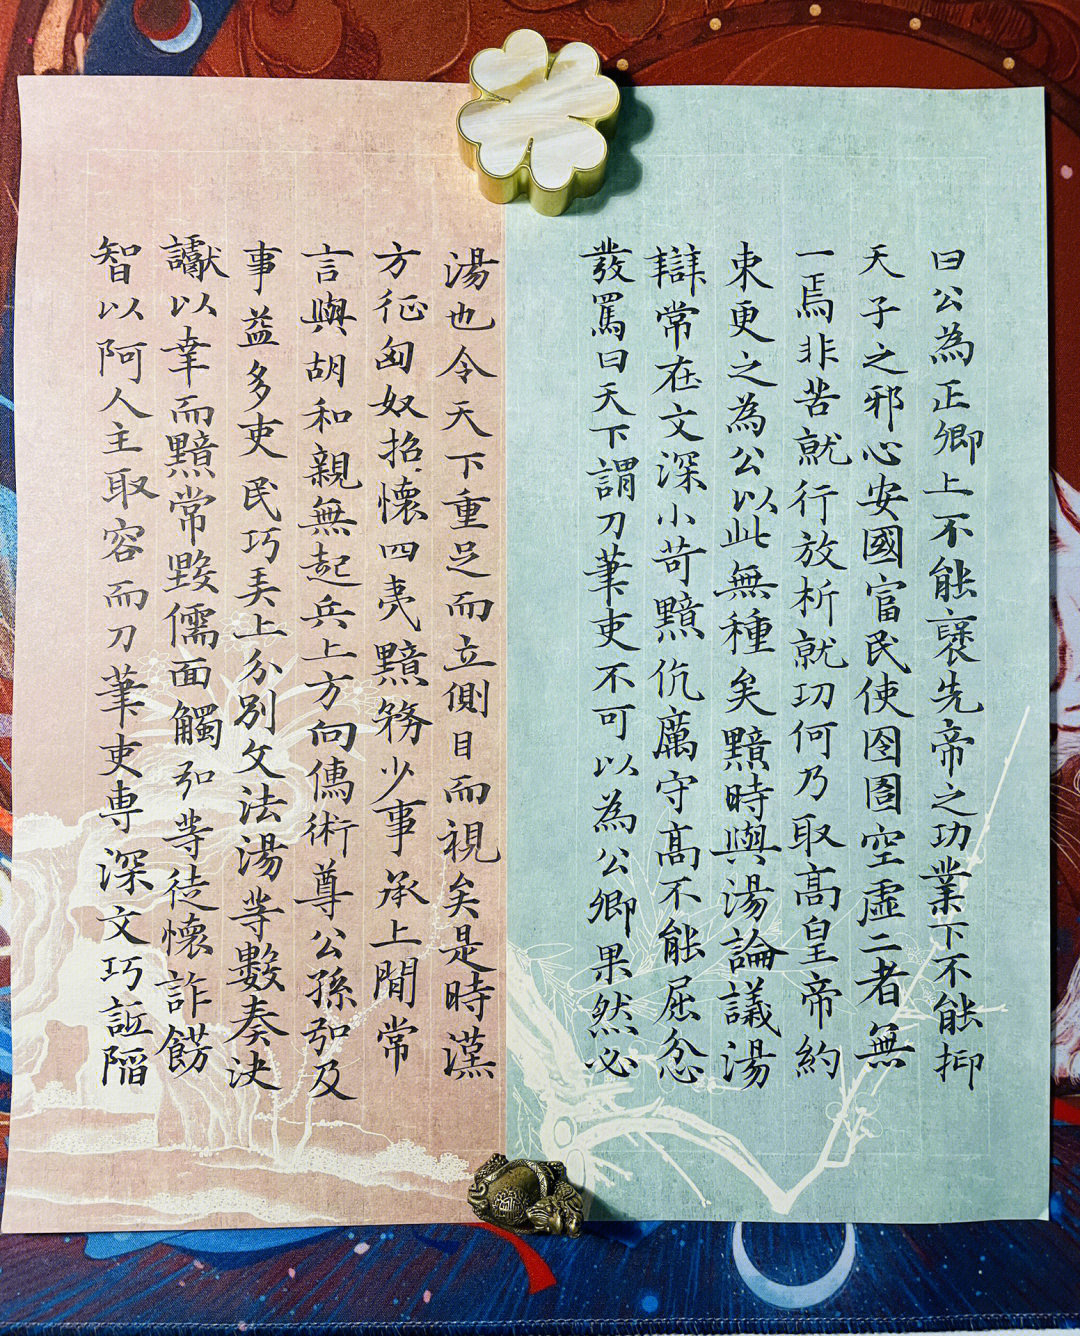 曰公為正卿上不能襃先帝之功業下不能抑
天子之邪心安國富民使囹圄空虛二者無
一焉非苦就行放析就功何乃取高皇帝約
束更之為公以此無種矣黯時與湯論議湯
辯常在文深小苛黯伉厲守高不能屈忿
發罵曰天下謂刀筆吏不可以為公卿果然必
湯也令天下重足而立側目而視矣是時漢
方征匈奴招懷四夷黯務少事承上閒常
言與胡和親無起兵上方向儒術尊公孫弘及
事益多吏民巧弄上分別文法湯等數奏決
讞以幸而黯常毀儒面觸弘等徒懷詐飾
智以阿人主取容而刀筆吏專深文巧詆陷